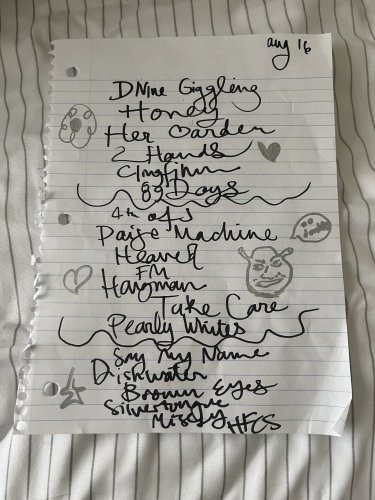 aug 16
D Nine Giggling
Honey
Her Garden
2 Hands
Clingfilm
89 Days
4th of J
Paige Machine
Heaven
FM
Hangman
Take Care
Pearly Whites
Say My Name
Dishwater
Brown Eyes
Silvertongue
Missy HFCS